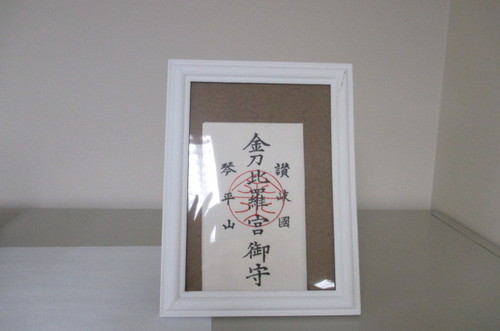 讃岐國
金刀比羅宮御守
琴平山